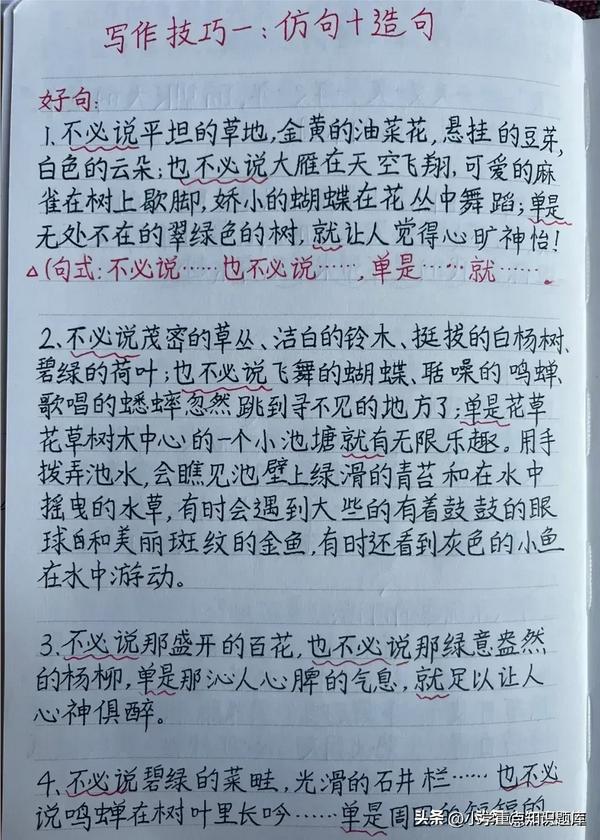 写作技巧一：仿句+造句
好句：
1.不必说平坦的草地，金黄的油菜花，悬挂的豆芽，
白色的云朵；也不必说大雁在天空飞翔，可爱的麻
雀在树上歇脚，娇小的蝴蝶在花丛中舞蹈；单是
无处不在的翠绿色的树，就让人觉得心旷神怡！
△(句式：不必说……也不必说……，单是……就……。
2、不必说茂密的草丛、洁白的铃木、挺拔的白杨树、
碧绿的荷叶；也不必说飞舞的蝴蝶、聒噪的鸣蝉、
歌唱的蟋蟀忽然跳到寻不见的地方了；单是花草
花草树木中心的一个小池塘就有无限乐趣。用手
拨弄池水，会瞧见池壁上绿滑的青苔和在水中
摇曳的水草，有时会遇到大些的有着鼓鼓的眼
球和美丽斑纹的金鱼，有时还看到灰色的小鱼
在水中游动。
3、不必说那盛开的百花，也不必说那绿意盎然
的杨柳，单是那沁人心脾的气息，就足以让人
心神俱醉。
4、不必说碧绿的菜畦，光滑的石井栏……也不必
说鸣蝉在树叶里长吟……单是周围的短短的
头条 @小考重点知识题库